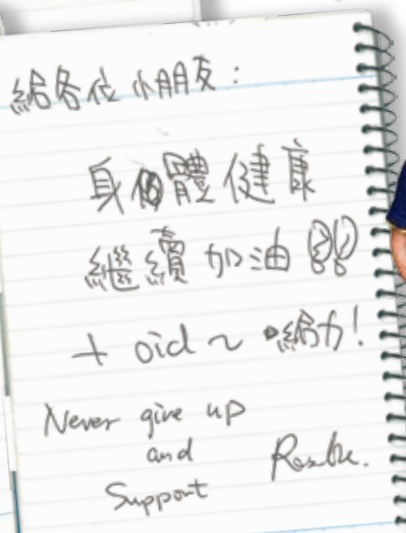 給各位小朋友:
身體健康
繼續加油
+ oil ~ 給力!
Never give up
and
Support